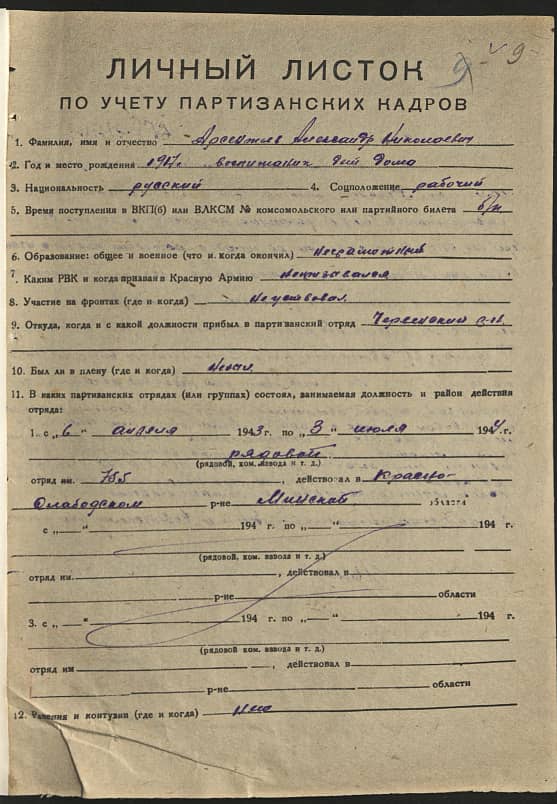 9 - 9 -
ЛИЧНЫЙ ЛИСТОК
ПО УЧЕТУ ПАРТИЗАНСКИХ КАДРОВ
1. Фамилия, имя и отчество Арсентьев Александр Николаевич
2. Год и место рождения 1917г. воспитаник Дет Дома
3. Национальность русский 4. Соцположение рабочий
5. Время поступления в ВКП(б) или ВЛКСМ № комсомольского или партийного билета б/п
6. Образование: общее и военное (что и когда окончил) Неграмотный
7. Каким РВК и когда призван в Красную Армию Непризывался
8. Участие на фронтах (где и когда) Неуствовал
9. Откуда, когда и с какой должности прибыл в партизанский отряд
10. Был ли в плену (где и когда) Небыл
11. В каких партизанских отрядах (или группах) состоял, занимаемая должность и район действия
отряда:
1. с „6“ апреля 1943 г. по „3“ июля 1944 г.
рядовой
(рядовой, ком. взвода и т. д.)
отряд им. 755, действовал в Красно-
Слабодском р-не Минской области
с „ “ 194 г. по „ “ 194 г.
(рядовой, ком. взвода и т. д.)
отряд им. , действовал в
р-не области
3. с „ “ 194 г. по „ “ 194 г.
(рядовой, ком. взвода и т. д.)
отряд им , действовал в
р-не области
12. Ранения и контузии (где и когда) Нет